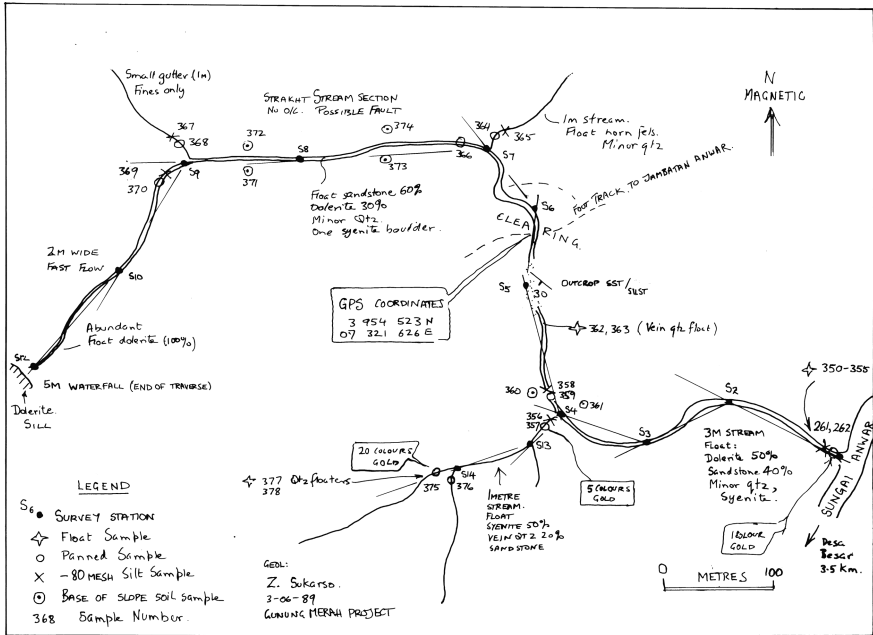 Small gutter (1M)
Fines only
367
368
372
STRAIGHT STREAM SECTION
No O/C. POSSIBLE FAULT
374
364
365
366
S7
1m stream.
Float hornfels.
Minor qtz
N
MAGNETIC
369
370
S9
371
S8
373
Float sandstone 60%
Dolerite 30%
Minor Qtz.
One syenite boulder.
FOOT TRACK TO JAMBATAN ANWAR.
S6
CLEARING.
2M WIDE
FAST FLOW
S10
GPS COORDINATES
3 954 523 N
07 321 626 E
S5
30
OUTCROP SST/SILST
362, 363 (Vein qtz float)
Abundant
Float dolerite (100%)
S12
5M WATERFALL (END OF TRAVERSE)
Dolerite
SILL
360
358
359
361
S4
356
357
S13
S3
S2
350-355
261, 262
SUNGAI ANWAR
3M STREAM
Float:
Dolerite 50%
Sandstone 40%
Minor qtz,
Syenite.
20 COLOURS
GOLD
377
378
Qtz floaters
375
S14
376
5 COLOURS
GOLD
1 METRE
STREAM.
FLOAT
SYENITE 50%
VEIN QTZ 20%
SANDSTONE
1 COLOUR
GOLD
Desa
Besar
3.5 km.
0 METRES 100
LEGEND
S6 SURVEY STATION
Float Sample
Panned Sample
-80 MESH Silt Sample
BASE OF SLOPE soil sample
368 Sample Number.
GEOL:
Z. Sukarso.
3-06-89
GUNUNG MERAH PROJECT